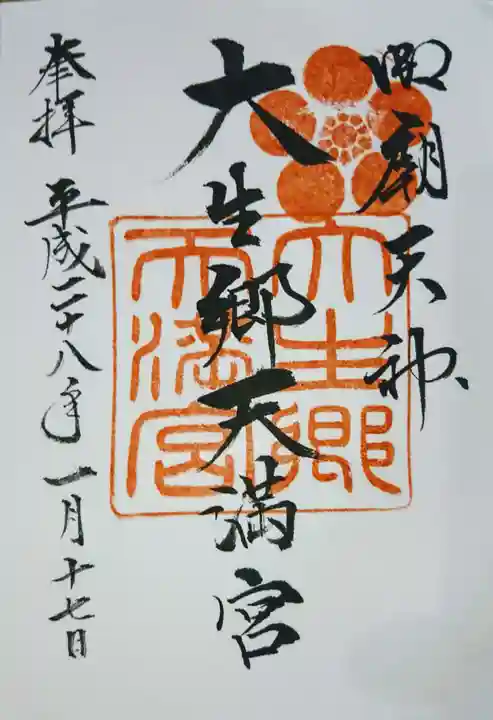 御廟天神
大生郷天満宮
奉拝 平成二十八年一月十七日
大生郷
天満宮